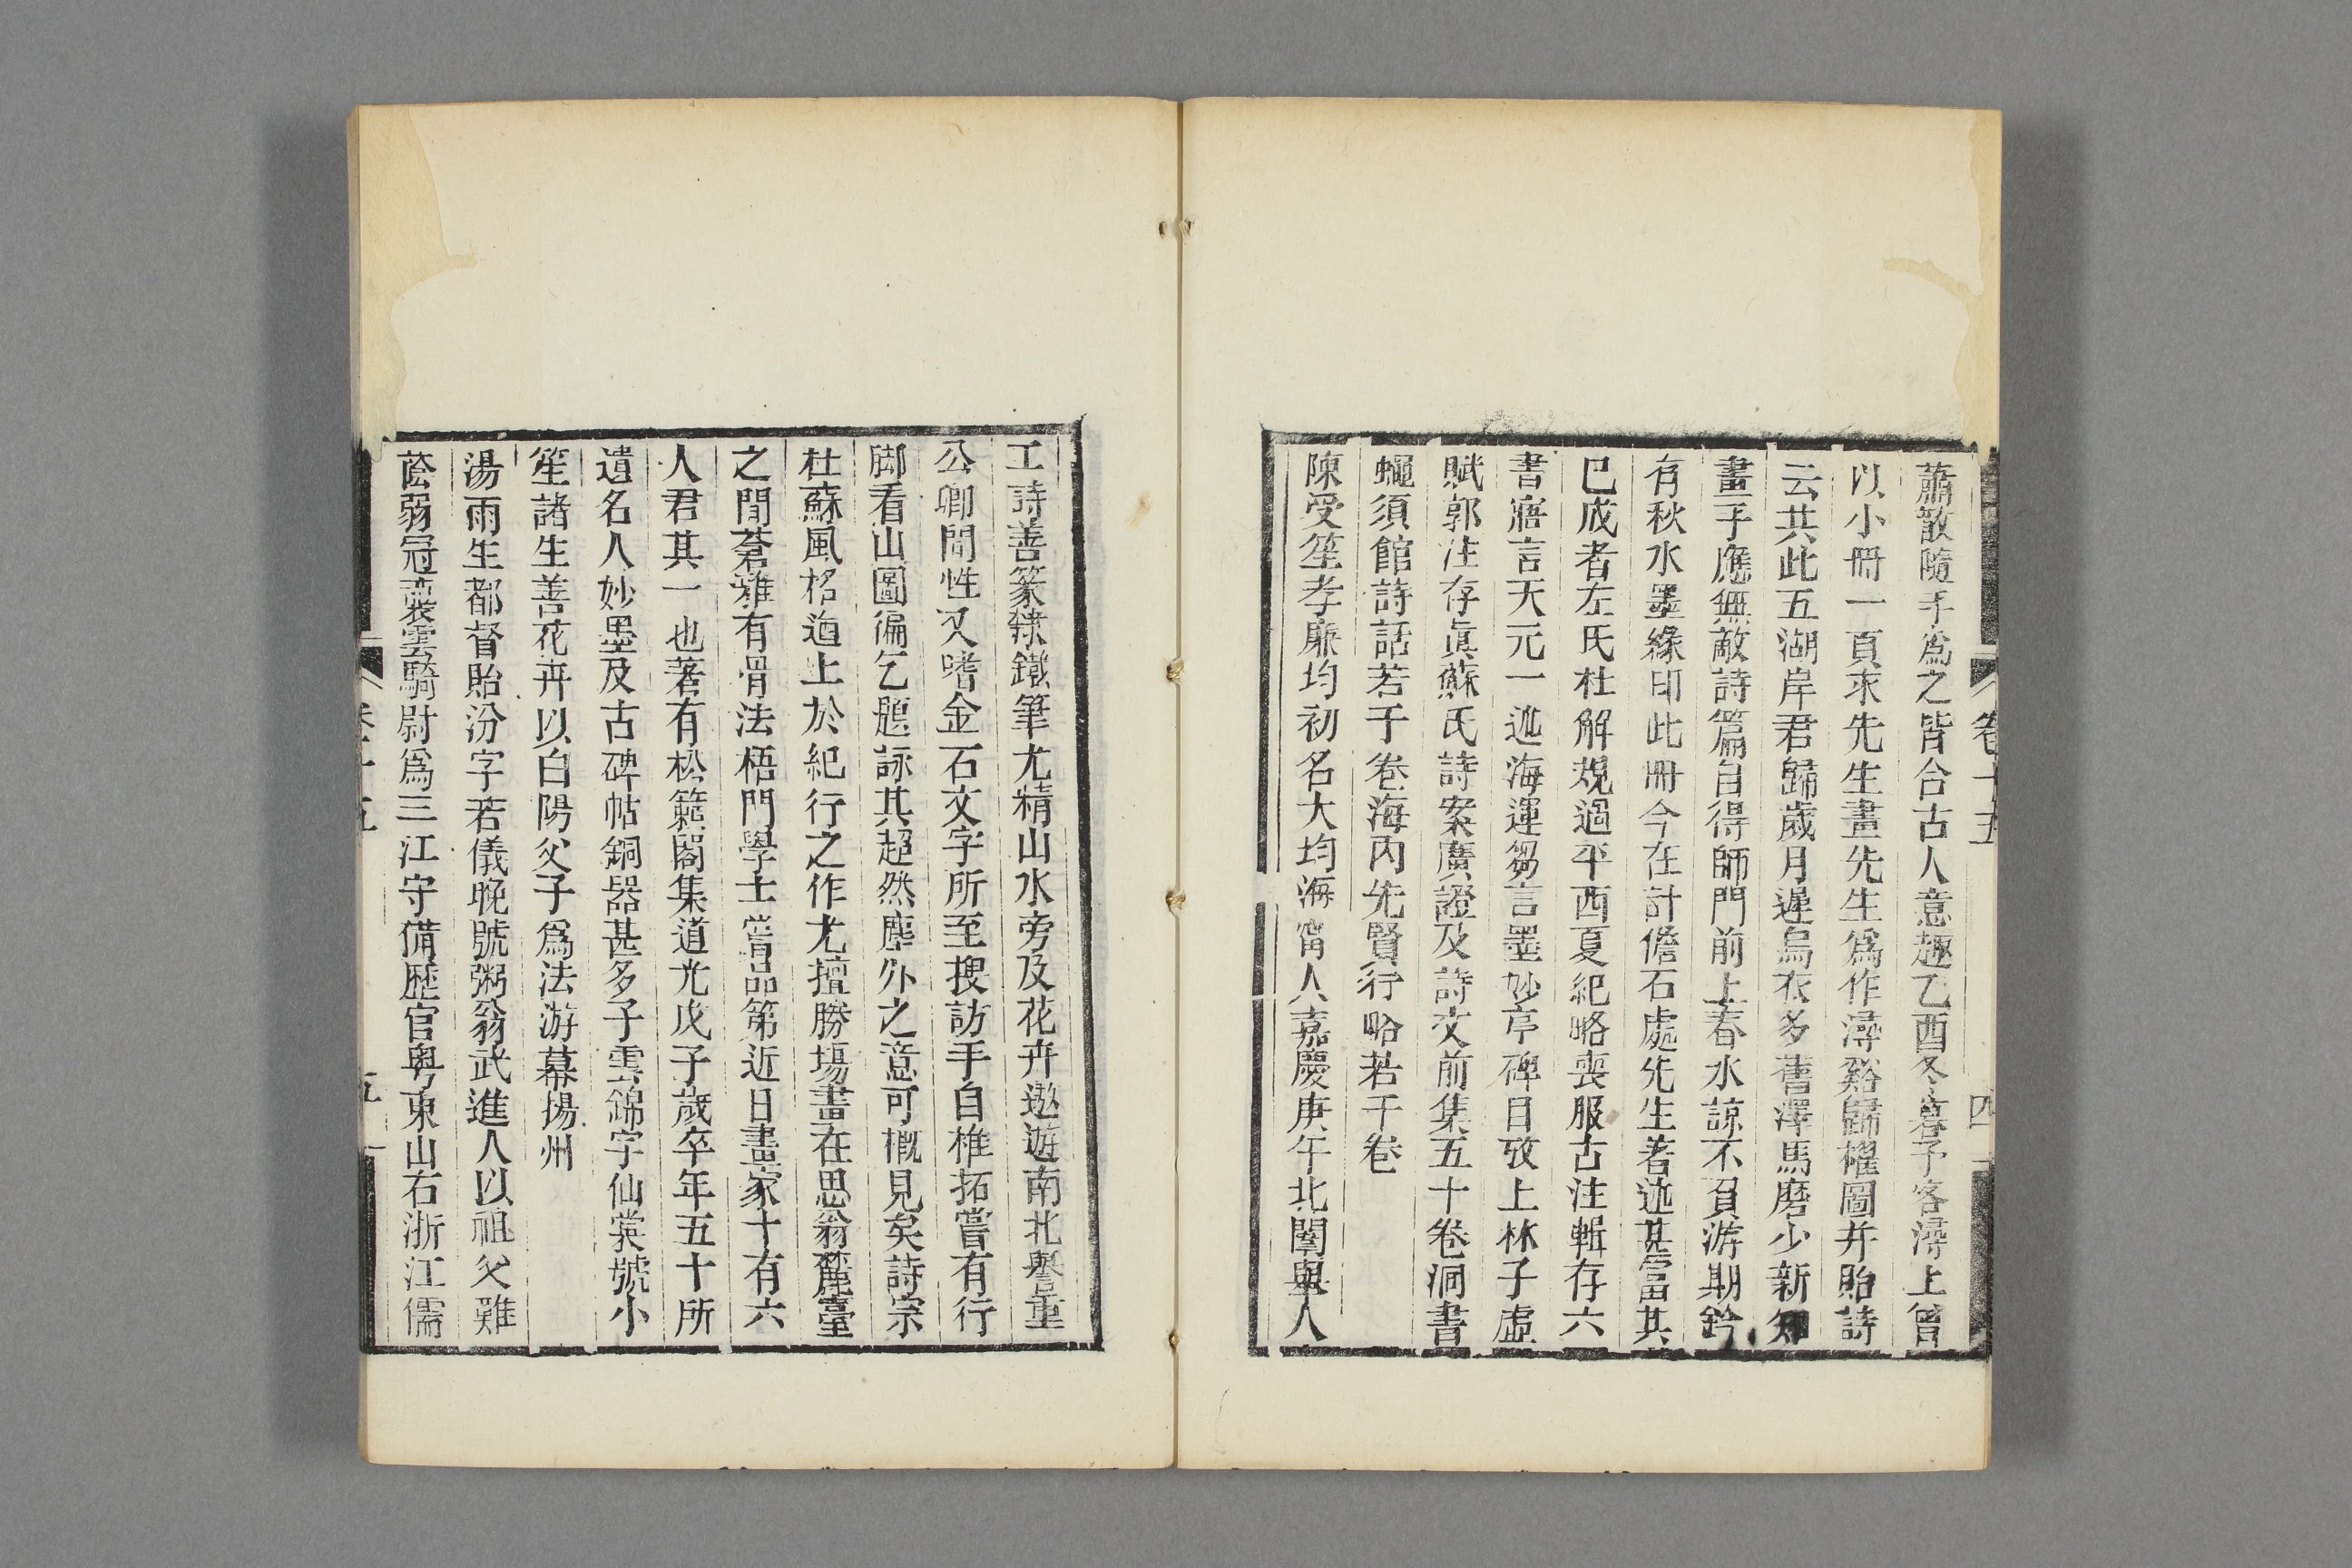 蕭散隨手爲之皆合古人意趣乙酉冬暮予客潯上曾
以小冊一頁求先生畫先生爲作潯谿歸櫂圖幷貽詩
云共此五湖岸君歸歲月遲烏衣多舊澤馬磨少新知
畫手應無敵詩篇自得師門前上春水諒不負游期鈐
有秋水墨緣印此冊今在計儋石處先生著述甚富其
已成者左氏杜解規過平西夏紀略喪服古注輯存六
書寤言天元一述海運芻言墨妙亭碑目攷上林子虛
賦郭注存眞蘇氏詩案廣證及詩文前集五十卷洞書
蠅須館詩話若干卷海內先賢行略若干卷
陳受笙孝廉均初名大均海甯人嘉慶庚午北闈舉人
卷十五
四
工詩善篆隸鐵筆尤精山水旁及花卉遨遊南北譽重
公卿間性又嗜金石文字所至搜訪手自椎拓嘗有行
脚看山圖徧乞題詠其超然塵外之意可槪見矣詩宗
杜蘇風格遒上於紀行之作尤擅勝塲畫在思翁麓臺
之間蒼雅有骨法梧門學士嘗品第近日畫家十有六
人君其一也著有松籟閣集道光戊子歲卒年五十所
遺名人妙墨及古碑帖銅器甚多子雲錦字仙裳號小
笙諸生善花卉以白陽父子爲法游幕揚州
湯雨生都督貽汾字若儀晚號粥翁武進人以祖父難
廕弱冠襲雲騎尉爲三江守備歷官粵東山右浙江儒
卷十五
五